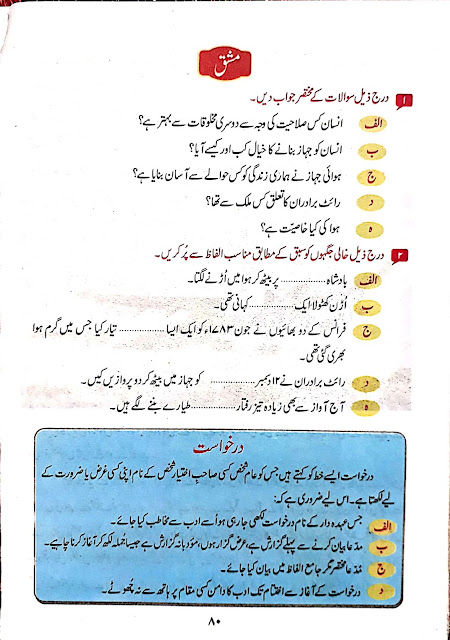 مشق
۱ درج ذیل سوالات کے مختصر جواب دیں۔
الف انسان کس صلاحیت کی وجہ سے دوسری مخلوقات سے بہتر ہے؟
ب انسان کو جہاز بنانے کا خیال کب اور کیسے آیا؟
ج ہوائی جہاز نے ہماری زندگی کو کس حوالے سے آسان بنایا ہے؟
د رائٹ برادران کا تعلق کس ملک سے تھا؟
ہ ہوا کی کیا خاصیّت ہے؟
۲ درج ذیل خالی جگہوں کو سبق کے مطابق مناسب الفاظ سے پُر کریں۔
الف بادشاہ ................ پر بیٹھ کر ہوا میں اُڑنے لگتا۔
ب اُڑن کھٹولا ایک ................ کہانی تھی۔
ج فرانس کے دو بھائیوں نے جون ۱۷۸۳ء کو ایک ایسا ................ تیار کیا جس میں گرم ہوا
بھری گئی تھی۔
د رائٹ برادران نے ۱۲ دسمبر ................ کو جہاز میں بیٹھ کر دو پروازیں کیں۔
ہ آج آواز سے بھی زیادہ تیز رفتار ................ طیارے بننے لگے ہیں۔
درخواست
درخواست ایسے خط کو کہتے ہیں جس کو عام شخص کسی صاحبِ اختیار شخص کے نام اپنی کسی غرض یا ضرورت کے
لیے لکھتا ہے۔ اس لیے ضروری ہے کہ:
الف جس عہدہ دار کے نام درخواست لکھی جا رہی ہو اُسے ادب سے مخاطب کیا جائے۔
ب مدّعا بیان کرنے سے پہلے گزارش ہے، عرض گزار ہوں، مؤدبانہ گزارش ہے جیسا جملہ لکھ کر آغاز کرنا چاہیے۔
ج مدّعا مختصر مگر جامع الفاظ میں بیان کیا جائے۔
د درخواست کے آغاز سے اختتام تک ادب کا دامن کسی مقام پر ہاتھ سے نہ چھوٹے۔
۸۰